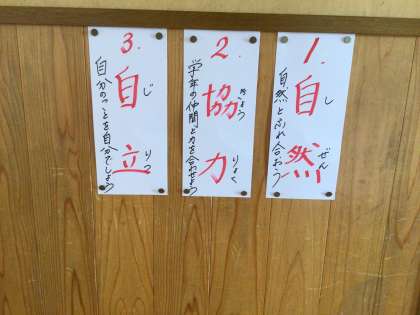 1.
自然
しぜん
自然とふれ合おう
2.
協力
きょうりょく
学年の仲間と力を合わせよう
3.
自立
じりつ
自分のことを自分でしよう